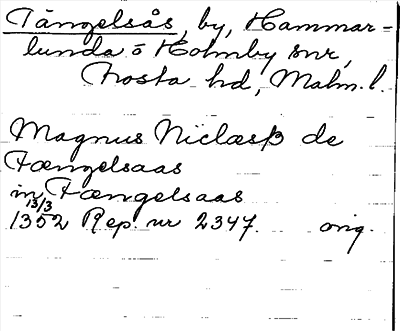 Tängelsås, by, Hammar-
lunda o Holmby snr,
Frosta hd, Malm. l.
Magnus Niclæsß de
Tængelsaas
in Tængelsaas
13/3
1352 Rep. nr 2347. orig.